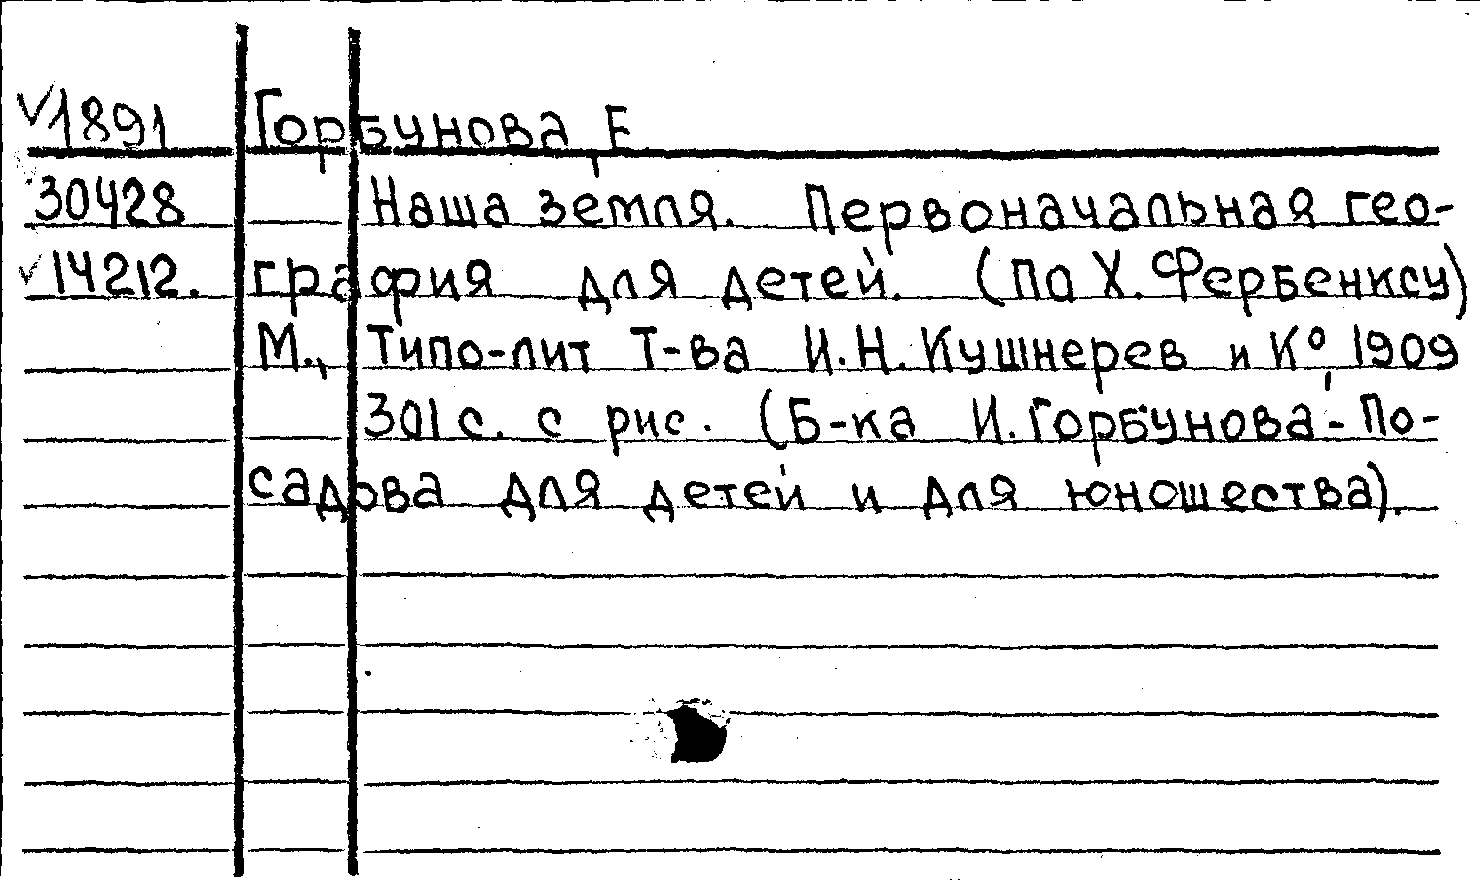 √1891 Горбунова, Е.
30428 Наша земля. Первоначальная гео-
√14212. графия для детей. (По Х. Фербенксу)
М., Типо-лит Т-ва И.Н. Кушнерев и К°, 1909
301 с. с рис. (Б-ка И. Горбунова-По-
садова для детей и для юношества).